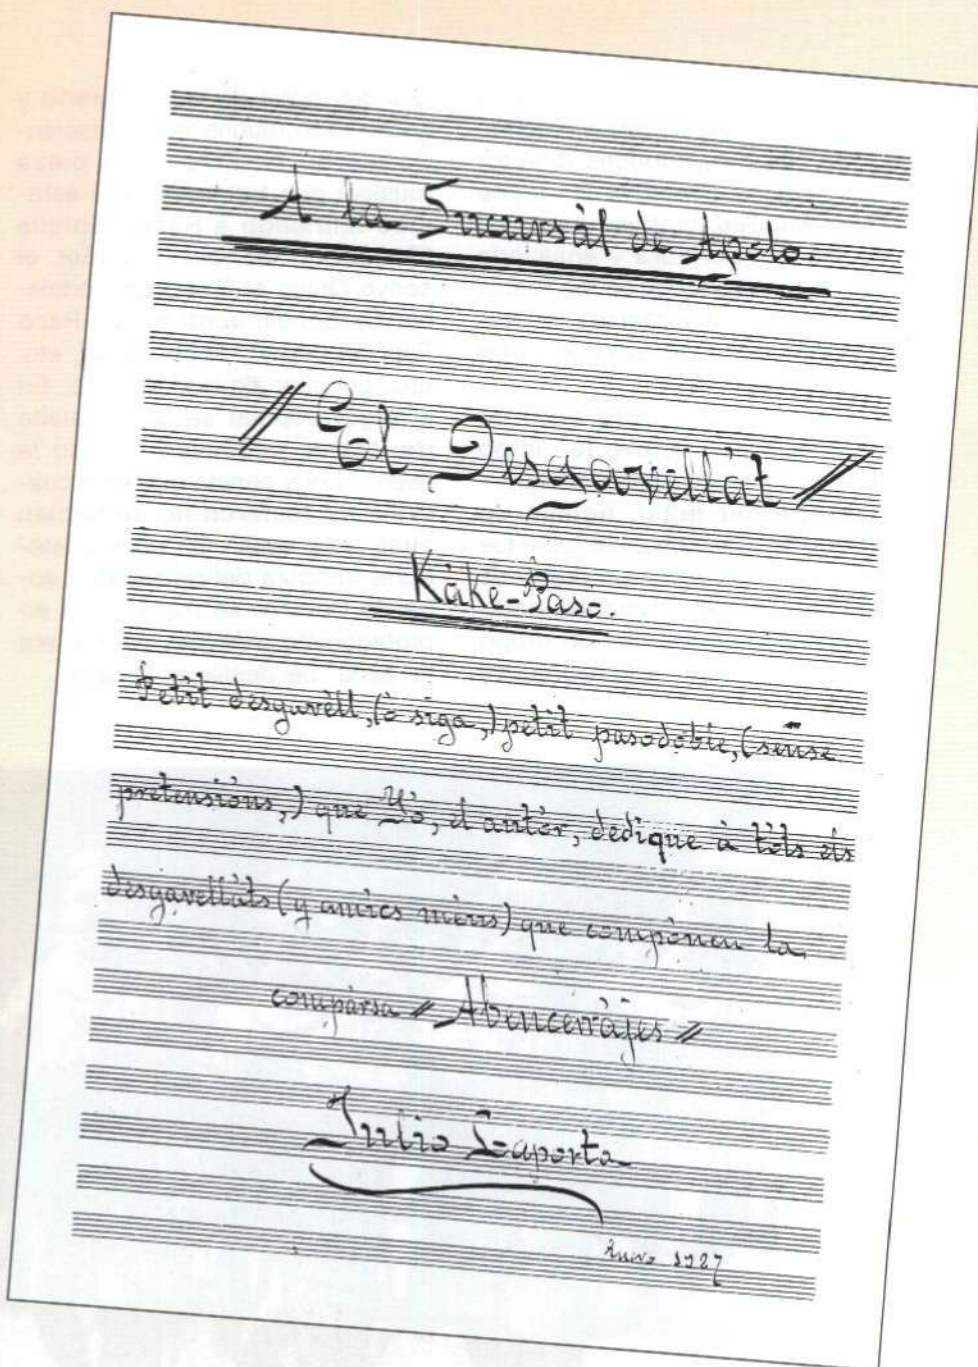 A la Sucursàl de Apolo.
// El Desgavellàt //
Kàke-Paso.
Petit desgavèll, (ò siga,) petit pasodòble, (sense
pretensiòns,) que Yò, el autòr, dedique à tòts els
desgavellàts (y amics mèus) que compònen la
compàrsa // Abencerràjes //
Julio Laporta
Enero 1927